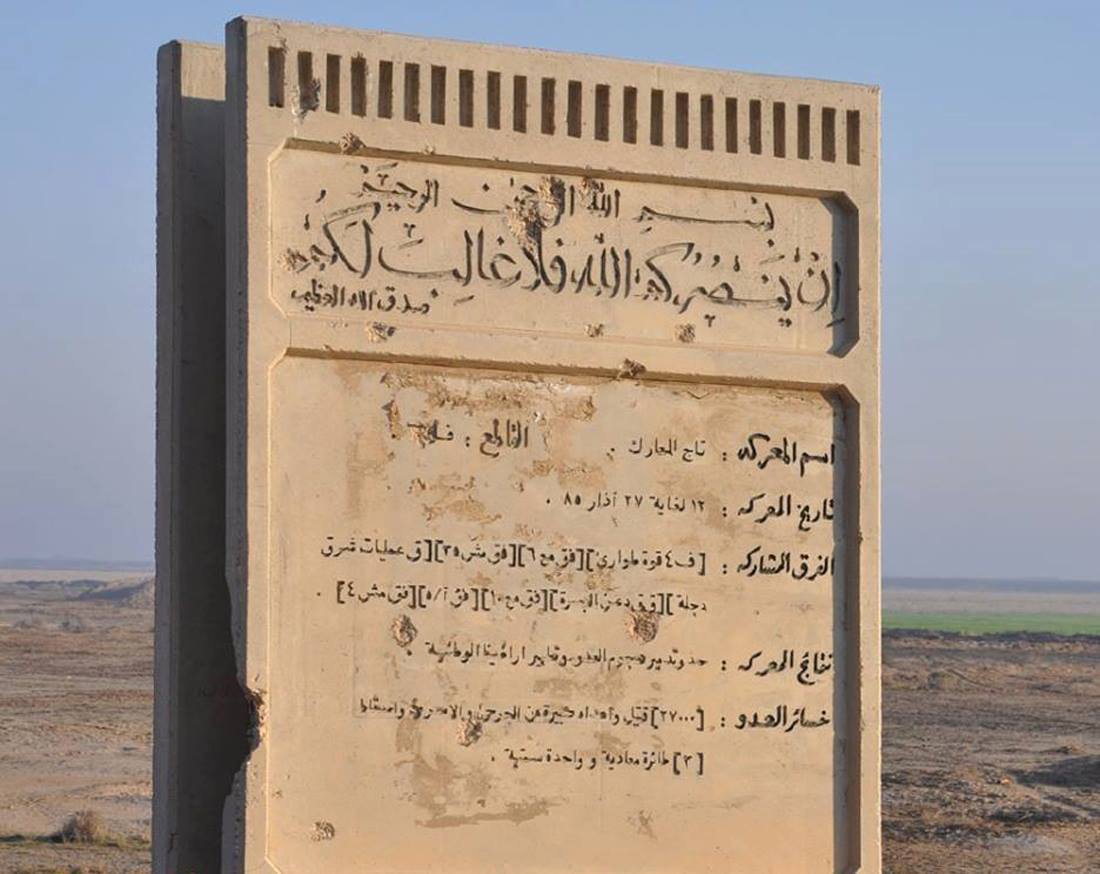 بسم الله الرحمن الرحيم
إِنْ يَنْصُرْكُمُ اللهُ فَلَا غَالِبَ لَكُمْ
صدق الله العظيم
اسم المعركه : تاج المعارك . القاطع :
تاريخ المعركه : ١٢ لغاية ٢٧ آذار ٨٥ .
الفرق المشاركه : [ف٤ قوة طوارئ] [فق مع ٦] [فق مش ٣٥] [ق عمليات شرق
دجلة] [ق ق دعن البصرة] [فق مع ١٠] [فق آ/٥] [فق مش ٤] .
نتائج المعركه : صد وتدمير هجوم العدو وتطهير اراضينا الوطنية .
خسائر العدو : [٢٧٠٠٠] قتيل وأعداد كبيرة من الجرحى و الاسرى واسقاط
[٣] طائرة معادية و واحدة سمتية .